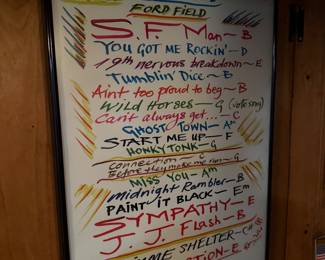 FORD FIELD
S.F. Man - B
YOU GOT ME ROCKIN' - D
19th nervous breakdown - E
Tumblin' Dice - B
Aint too proud to beg - B
Wild Horses - G (vote song)
Can't always get... - C
GHOST TOWN - Am
START ME UP - F
HONKY TONK - G
Connection - C
Before they make me run - G
MISS YOU - Am
midnight Rambler - B
PAINT IT BLACK - Em
SYMPATHY - E
J.J. Flash - B
SHELTER - C#